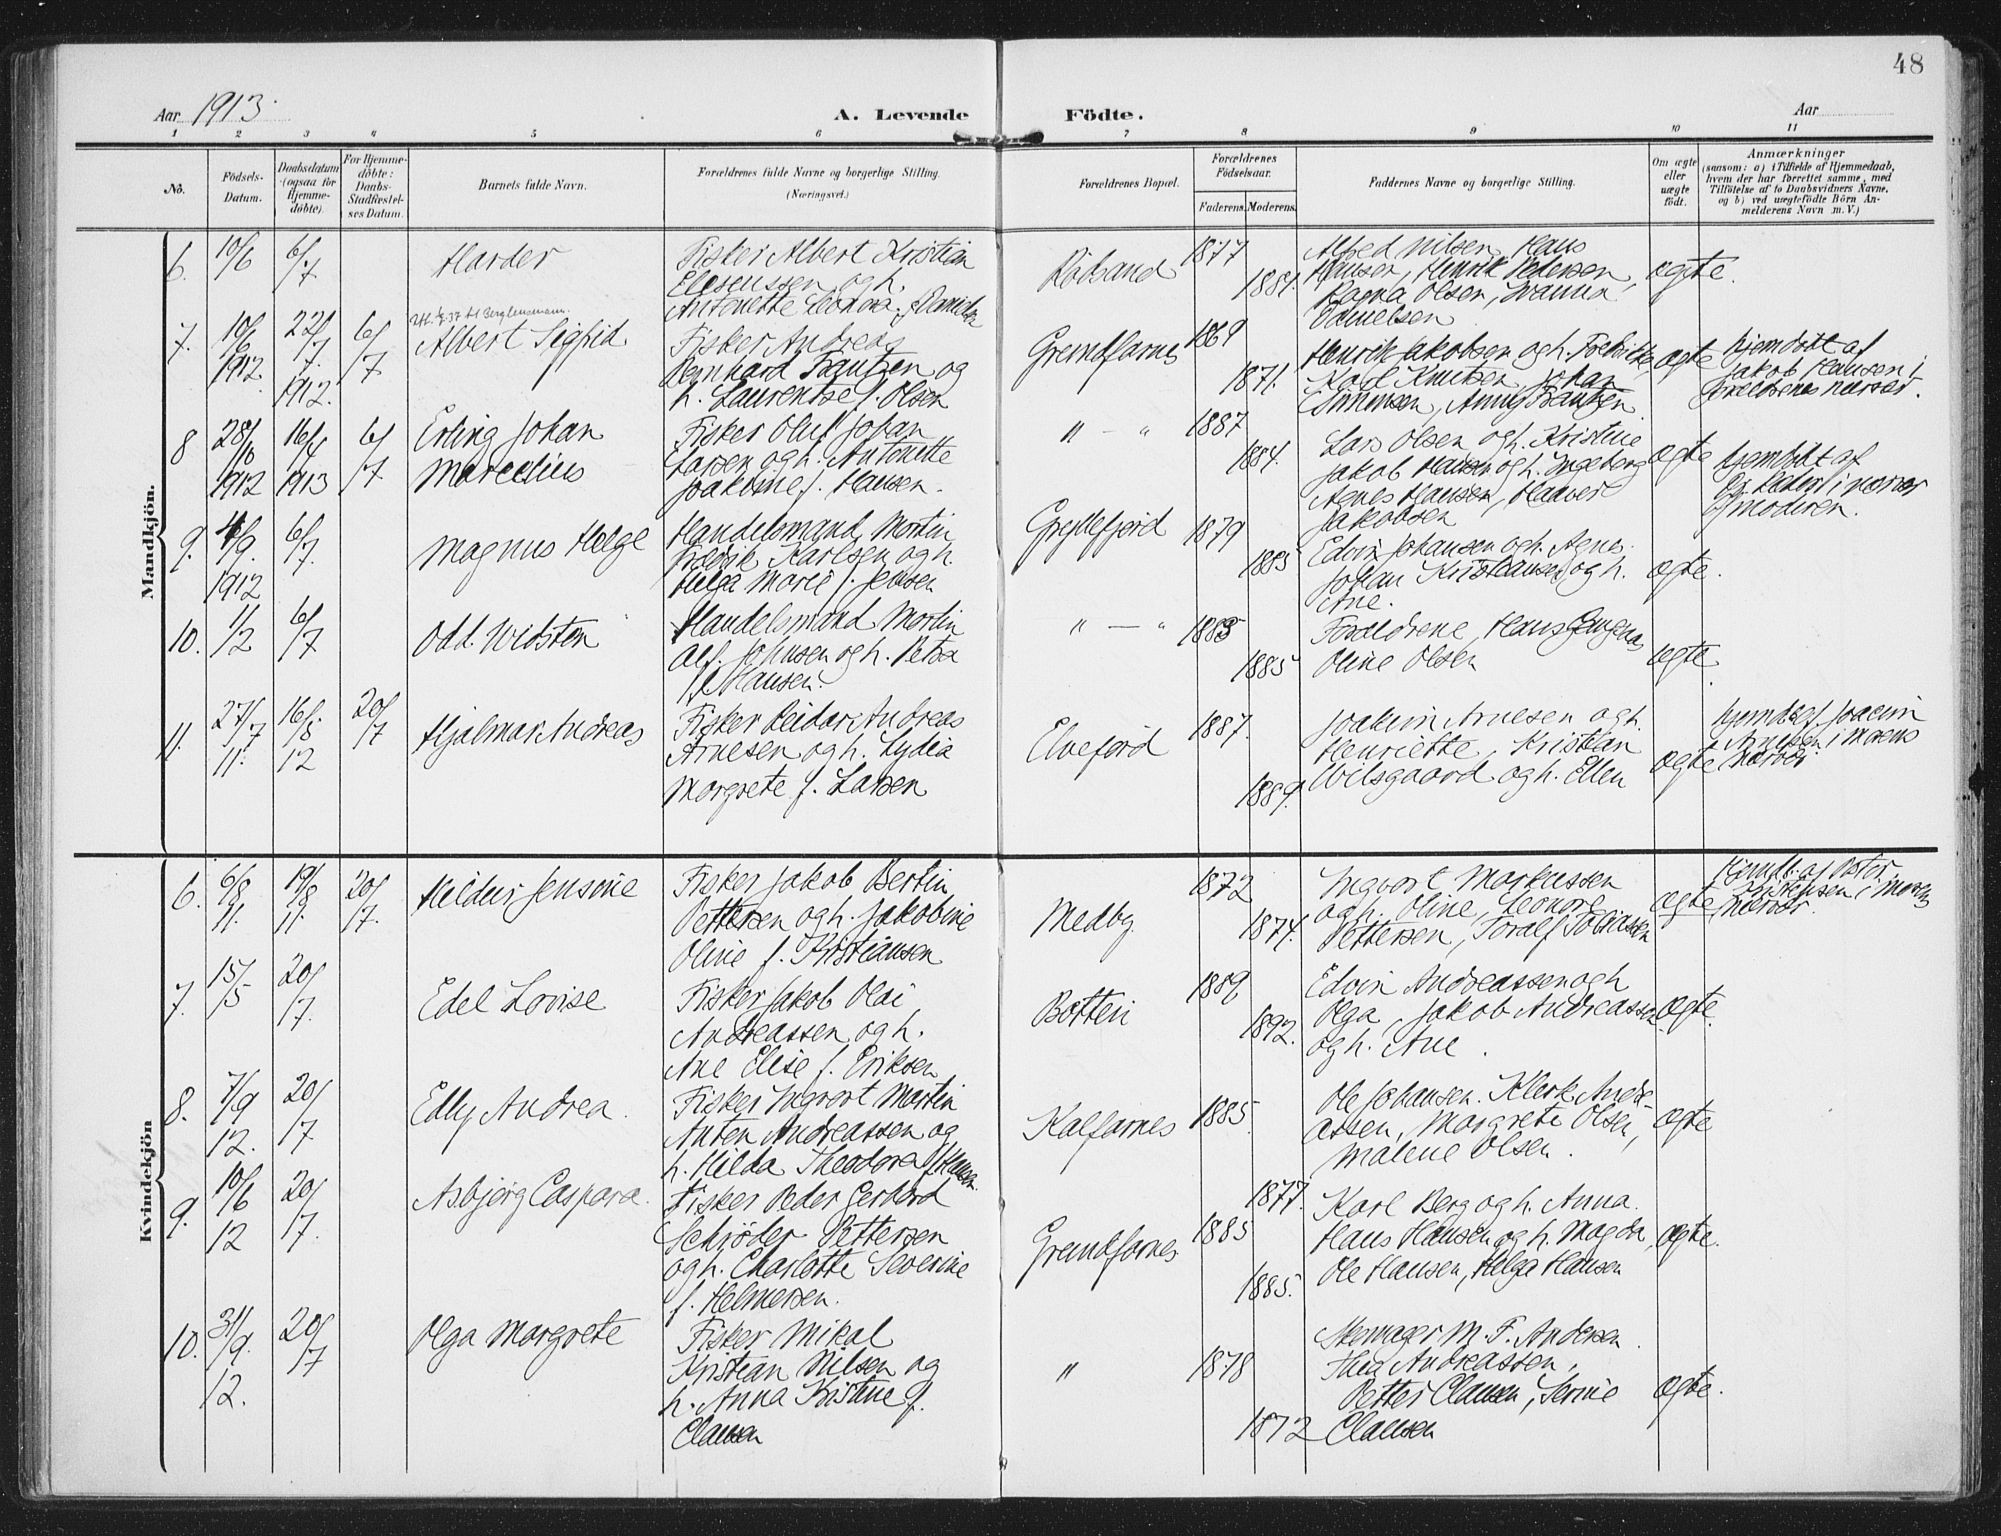 48
Aar 1913.
A. Levende
Födte.
Aar
1 2 3 4 5 6 7 8 9 10 11
No.
Födsels-
Datum.
Daabsdatum
(ogsaa for
Hjemme-
döbte).
For Hjemme-
döbte:
Daabs-
Stadfæstel-
ses Datum.
Barnets fulde Navn.
Forældrenes fulde Navne og borgerlige Stilling.
(Næringsvei.)
Forældrenes Bopæl.
Forældrenes
Födselsaar.
Faderens.
Moderens.
Faddernes Navne og borgerlige Stilling.
Om ægte
eller
uægte
födt.
Anmærkninger
(saasom: a) i Tilfælde af Hjemmedaab,
hvem der har forrettet samme, med
Tilföielse af to Daabsvidners Navne,
og b) ved uægtefödte Börn An-
melderens Navn m. V.)
Mandkjön.
6.
10/6
6/7
Harder
Fisker Albert Kristian
Elesenssen og h.
Antonette f. Danielsen
1877
1884.
Alfred Nilsen, Hans
Hansen, Henrik Pedersen,
Ragna Olsen,
Danielsen
ægte.
7.
10/6
1912
22/7
1912.
6/7
Albert Sigfrid
Fisker Andreas
Bernhard Frantzen og
h. Laurentse f. Olsen
Grundfarnes
1869
1871.
Henrik Jakobsen og h.
Karl Knutsen, Johan
Simonsen, Anny Frantzen
ægte
hjemdöbt af
Jakob Hansen i
forældrenes nærvær.
8
28/10
1912
16/4
1913
6/7
Erling Johan
Marcelius
Fisker Oluf Johan
Larsen og h. Antonette
Jakobine f. Hansen.
" — "
1887
1884.
Lars Olsen og h. Kristine
Jakob Hansen og h. Ingeborg
Agnes Hansen, Haavar
Jakobsen
ægte
hjemdöbt af
i nærvær
af moderen.
9.
1912
6/7.
Magnus Helge
Handelsmand Martin
Fredrik Karlsen og h.
Helga Marie f. Jensen
Gryllefjord
1879
1885
Edvin Johansen og h. Agnes.
Johan Kristiansen og h.
Ane.
ægte.
10.
1/2
6/7
Odd. Widsten
Handelsmand Martin
Alf. Johnsen og h. Petra
f. Hansen.
" — "
1883
1885
Forældrene, Hans
Oline Olsen
ægte.
11.
27/7
11.
16/8
12
20/7
Hjalmar Andreas
Fisker Peidar Andreas
Arnesen og h. Lydia
Margrete f. Larsen
Elvefjord
1887.
1889.
Joakim Arnesen og h.
Henriette, Kristian
Wilsgaard og h. Ellen
ægte
hjemdöbt af. Joacim
Arnesen i morens
nærvær
Kvindekjön
6.
6/8
11.
19/8
11.
20/7.
Hildur Jensine
Fisker Jakob Bertin
Pettersen og h. Jakobine
Oline f. Kristiansen
Medby
1872
1874.
Ingvart Markussen
og h. Oline, Leonore
Pettersen, Toralf Tobiassen
ægte
Hjemdb. af Peter
Kristensen i morens
nærvær.
7.
15/5
20/7.
Edel Lovise
Fisker Jakob Olai
Andreassen og h.
Ane Elise f. Eriksen
Botten
1889
1892.
Edvin Andreassen og h
Olga, Jakob Andreassen
og h. Ane.
ægte.
8.
7/9
12.
20/7
Edly Andrea.
Fisker Ingvart Martin
Anten Andreassen og
h. Hilda Theodora f. Hansen.
Kalfarnes
1885.
1877.
Ole Johansen. Klerk Andre-
assen, Margrete Olsen,
Malene Olsen.
ægte
9.
10/6
12
20/7.
Asbjörg Caspara.
Fisker Peder Gerhard
Schröder Pettersen
og h. Charlotte Severine
f. Helmersen.
Grundfarnes
1885
1885.
Karl Berg og h. Anna.
Hans Hansen og h. Magda,
Ole Hansen, Helga Hansen
ægte.
10.
12.
20/7
Olga Margrete
Fisker Mikal
Kristian Nilsen og
h. Anna Kristine f.
Clausen
"
1878
1872
M. F. Andersen.
Thea Andreassen,
Petter Clausen, Serine
Clausen
ægte.